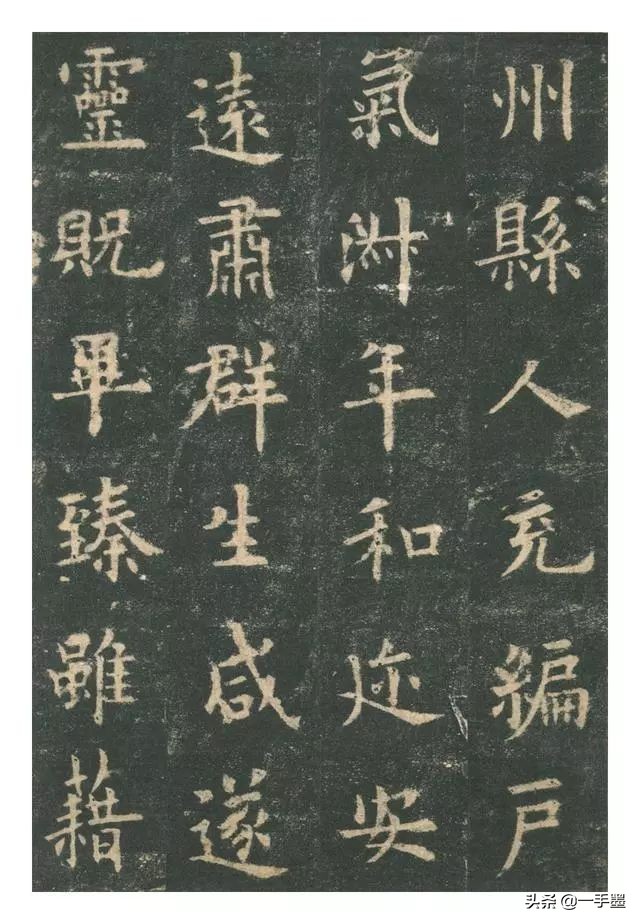 州縣人充編戶
氣淑年和迩安
遠肅群生咸遂
靈貺畢臻雖藉
头条 @一手墨